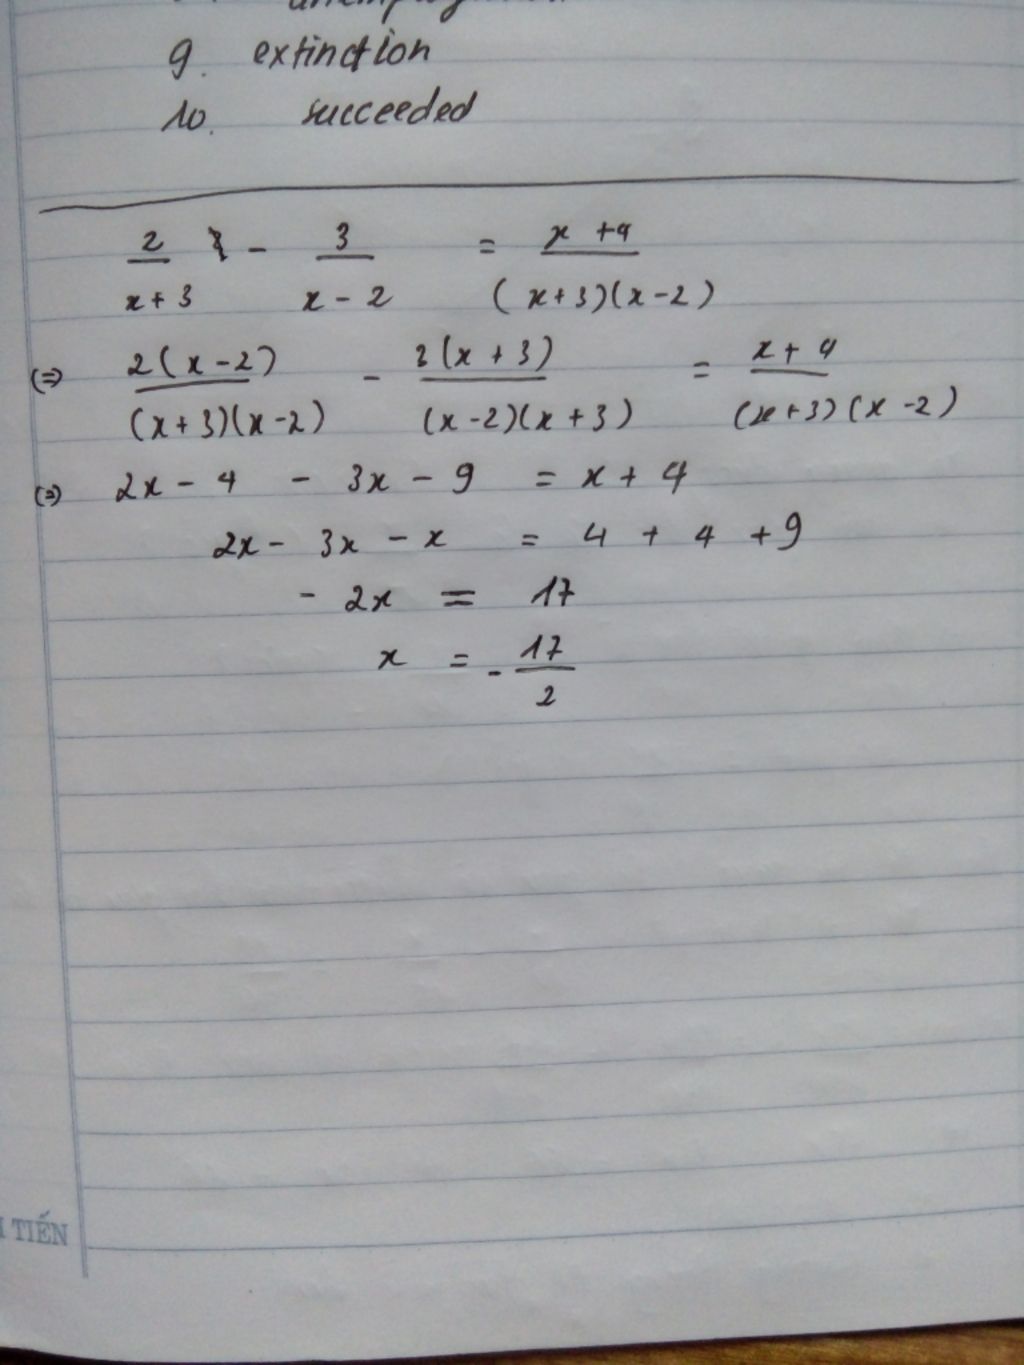 9. extinction
10. succeeded
2/(x+3) - 3/(x-2) = (x+4)/((x+3)(x-2))
(=) 2(x-2)/((x+3)(x-2)) - 3(x+3)/((x-2)(x+3)) = (x+4)/((x+3)(x-2))
(=) 2x - 4 - 3x - 9 = x + 4
2x - 3x - x = 4 + 4 + 9
- 2x = 17
x = - 17/2
TIẾN